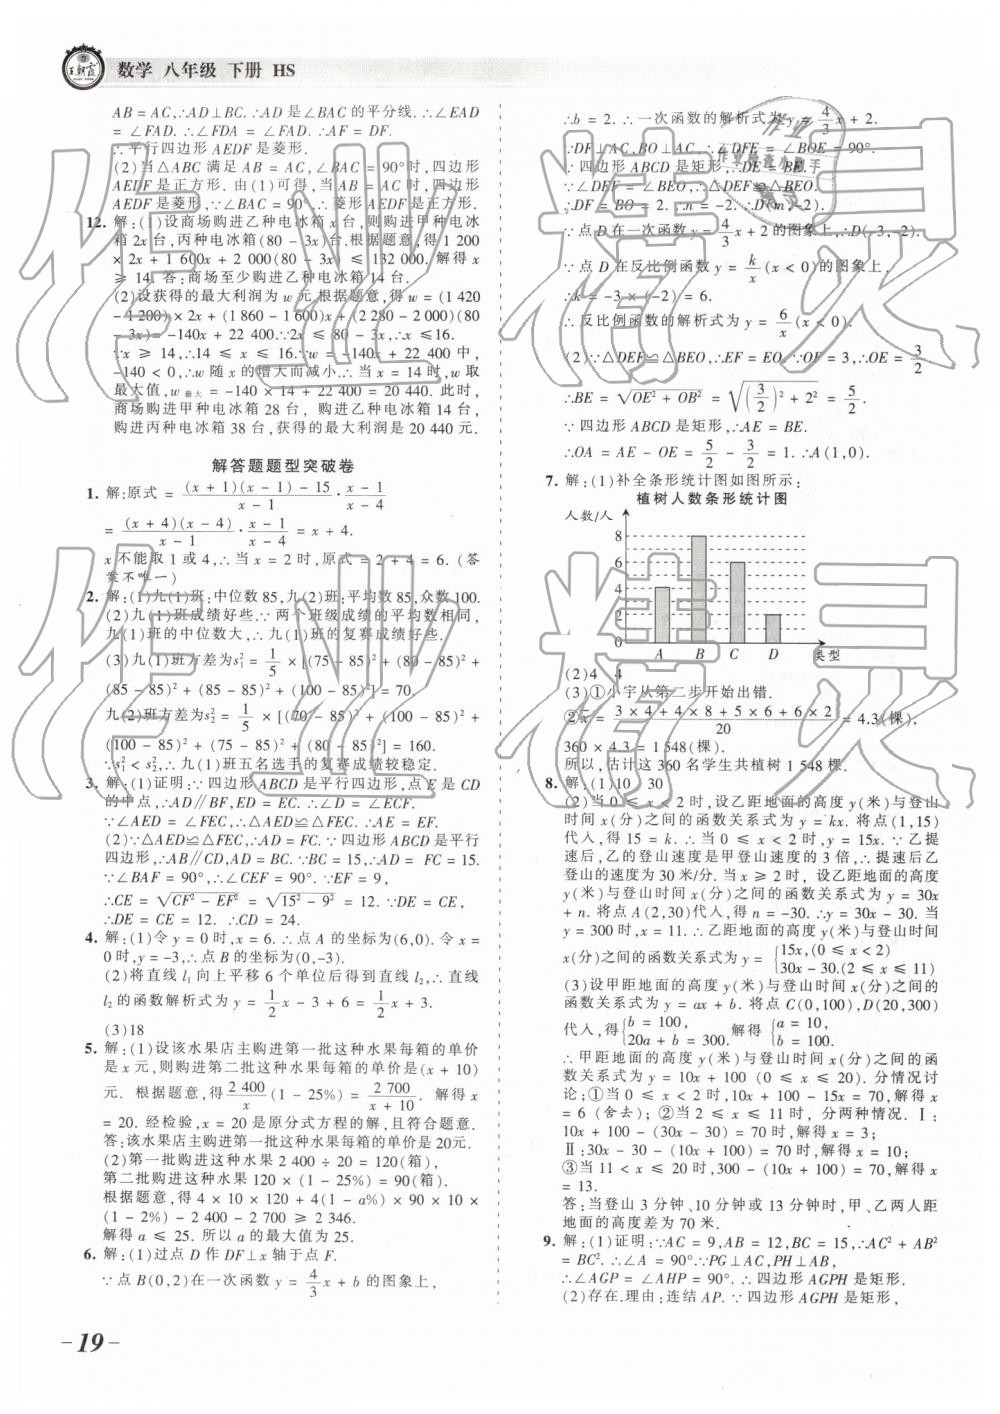 王朝霞
数学 八年级 下册 HS
AB = AC,∴AD⊥BC.∴AD 是∠BAC 的平分线.∴∠EAD
= ∠FAD. ∴∠FDA = ∠FAD.∴AF = DF.
∴平行四边形 AEDF 是菱形.
(2)当△ABC 满足 AB = AC,∠BAC = 90°时,四边形
AEDF 是正方形. 由(1)可得,当 AB = AC 时,四边形
AEDF 是菱形,∵∠BAC = 90°,∴菱形 AEDF 是正方形.
12. 解:(1)设商场购进乙种电冰箱 x 台,则购进甲种电冰
箱 2x 台,丙种电冰箱(80 - 3x)台.根据题意,得 1 200
× 2x + 1 600x + 2 000(80 - 3x) ≤ 132 000. 解得 x
≥ 14. 答:商场至少购进乙种电冰箱 14 台.
(2)设获得的最大利润为 w 元.根据题意,得 w = (1 420
- 1 200) × 2x + (1 860 - 1 600)x + (2 280 - 2 000)(80
- 3x) = -140x + 22 400.∵2x ≤ 80 - 3x,∴x ≤16.
∵x ≥ 14,∴14 ≤ x ≤ 16.∵w = -140x + 22 400,
-140 < 0,∴w 随 x 的增大而减小.∴当 x = 14 时,w 取
最大值,w最大 = -140 × 14 + 22 400 = 20 440. 此时,
商场购进甲种电冰箱 28 台, 购进乙种电冰箱 14 台,
购进丙种电冰箱 38 台,获得的最大利润为 20 440 元.
解答题题型突破卷
1. 解:原式 = \frac{(x + 1)(x - 1) - 15}{x - 1} · \frac{x - 1}{x - 4}
= \frac{(x + 4)(x - 4)}{x - 1} · \frac{x - 1}{x - 4} = x + 4.
x 不能取 1 或 4,∴当 x = 2 时,原式 = 2 + 4 = 6. (答
案不唯一)
2. 解:(1)九(1)班:中位数 85,九(2)班:平均数 85,众数 100.
(2)九(1)班成绩好些.∵两个班级成绩的平均数相同,
九(1)班的中位数大,∴九(1)班的复赛成绩好些.
(3)九(1)班方差为s₁² = \frac{1}{5} × [(75 - 85)² + (80 - 85)² +
(85 - 85)² + (85 - 85)² + (100 - 85)²] = 70.
九(2)班方差为s₂² = \frac{1}{5} × [(70 - 85)² + (100 - 85)² +
(100 - 85)² + (75 - 85)² + (80 - 85)²] = 160.
∵s₁² < s₂²,∴九(1)班五名选手的复赛成绩较稳定.
3. 解:(1)证明:∵四边形 ABCD 是平行四边形,点 E 是 CD
的中点,∴AD∥BF,ED = EC. ∴∠D = ∠ECF.
∵∠AED = ∠FEC,∴△AED≌△FEC. ∴AE = EF.
(2)∵△AED≌△FEC,∴AD = FC. ∵四边形 ABCD 是平行
四边形,∴AB∥CD,AD = BC. ∵BC = 15,∴AD = FC = 15.
∵∠BAF = 90°,∴∠CEF = 90°. ∵EF = 9,
∴CE = √(CF² - EF²) = √(15² - 9²) = 12. ∵DE = CE,
∴DE = CE = 12. ∴CD = 24.
4. 解:(1)令 y = 0 时,x = 6. ∴点 A 的坐标为(6,0). 令 x =
0时,y = -3,∴点 B 的坐标为(0,-3).
(2)将直线 l₁ 向上平移 6 个单位后得到直线 l₂,∴直线
l₂ 的函数解析式为 y = \frac{1}{2}x - 3 + 6 = \frac{1}{2}x + 3.
(3)18
5. 解:(1)设该水果店主购进第一批这种水果每箱的单价
是 x 元,则购进第二批这种水果每箱的单价是(x + 10)
元. 根据题意,得\frac{2 400}{x}(1 - 25%) = \frac{2 700}{x + 10}. 解得 x
= 20. 经检验,x = 20 是原分式方程的解,且符合题意.
答:该水果店主购进第一批这种水果每箱的单价是 20元.
(2)第一批购进这种水果 2 400 ÷ 20 = 120(箱),
第二批购进这种水果 120 × (1 - 25%) = 90(箱).
根据题意,得 4 × 10 × 120 + 4(1 - a%) × 90 × 10 ×
(1 - 2%) - 2 400 - 2 700 ≥ 2 346.
解得 a ≤ 25. 所以 a 的最大值为 25.
6. 解:(1)过点 D 作 DF⊥x 轴于点 F.
∵点 B(0,2)在一次函数 y = \frac{4}{3}x + b 的图象上,
∴b = 2. ∴一次函数的解析式为 y = \frac{4}{3}x + 2.
∵DF⊥AC,BO⊥AC,∴∠DFE = ∠BOE = 90°.
∵四边形 ABCD 是矩形,∴DE = BE.
∵∠DEF = ∠BEO,∴△DEF≌△BEO.
∴DF = BO = 2. ∴n = -2. ∴D(m,-2).
∵点 D 在一次函数 y = \frac{4}{3}x + 2 的图象上,∴D(-3,-2).
∵点 D 在反比例函数 y = \frac{k}{x}(x < 0)的图象上,
∴k = -3 × (-2) = 6.
∴反比例函数的解析式为 y = \frac{6}{x}(x < 0).
(2)∵△DEF≌△BEO,∴EF = EO. ∵OF = 3,∴OE = \frac{3}{2}.
∴BE = √(OE² + OB²) = √((\frac{3}{2})² + 2²) = \frac{5}{2}.
∵四边形 ABCD 是矩形,∴AE = BE.
∴OA = AE - OE = \frac{5}{2} - \frac{3}{2} = 1. ∴A(1,0).
7. 解:(1)补全条形统计图如图所示:
植树人数条形统计图
人数/人
8
6
4
2
0
A B C D 类型
(2)4 4
(3)①小宇从第二步开始出错.
②x̄ = \frac{3 × 4 + 4 × 8 + 5 × 6 + 6 × 2}{20} = 4.3(棵).
360 × 4.3 = 1 548(棵).
所以,估计这 360 名学生共植树 1 548 棵.
8. 解:(1)10 30
(2)当 0 ≤ x < 2 时,设乙距地面的高度 y(米)与登山
时间 x(分)之间的函数关系式为 y = kx. 将点(1,15)
代入,得 15 = k. ∴当 0 ≤ x < 2 时,y = 15x. ∵乙提
速后,乙的登山速度是甲登山速度的 3 倍,∴提速后乙
登山的速度为 30 米/分. 当 x ≥ 2 时, 设乙距地面的高度
y(米)与登山时间 x(分)之间的函数关系式为 y = 30x
+ n. 将点 A(2,30)代入,得 n = -30. ∴y = 30x - 30. 当
y = 300 时,x = 11. ∴乙距地面的高度 y(米)与登山时间
x(分)之间的函数关系式为 y = {15x,(0 ≤ x < 2)
30x - 30.(2 ≤ x ≤ 11)
(3)设甲距地面的高度 y(米)与登山时间 x(分)之间的
函数关系式为 y = ax + b. 将点 C(0,100),D(20,300)
代入,得{b = 100, 解得 {a = 10,
20a + b = 300. b = 100.
∴甲距地面的高度 y(米)与登山时间 x(分)之间的函
数关系式为 y = 10x + 100 (0 ≤ x ≤ 20). 分情况讨
论:①当 0 ≤ x < 2 时,10x + 100 - 15x = 70,解得 x
= 6 (舍去);②当 2 ≤ x ≤ 11 时, 分两种情况. Ⅰ:
10x + 100 - (30x - 30) = 70,解得 x = 3;
Ⅱ:30x - 30 - (10x + 100) = 70,解得 x = 10;
③当 11 < x ≤ 20 时,300 - (10x + 100) = 70,解得 x
= 13.
答:当登山 3 分钟、10 分钟或 13 分钟时,甲、乙两人距
地面的高度差为 70 米.
9. 解:(1)证明:∵AC = 9,AB = 12,BC = 15,∴AC² + AB²
= BC². ∴∠A = 90°.∵PG⊥AC,PH⊥AB,
∴∠AGP = ∠AHP = 90°. ∴四边形 AGPH 是矩形.
(2)存在.理由:连结 AP. ∵四边形 AGPH 是矩形,
- 19 -